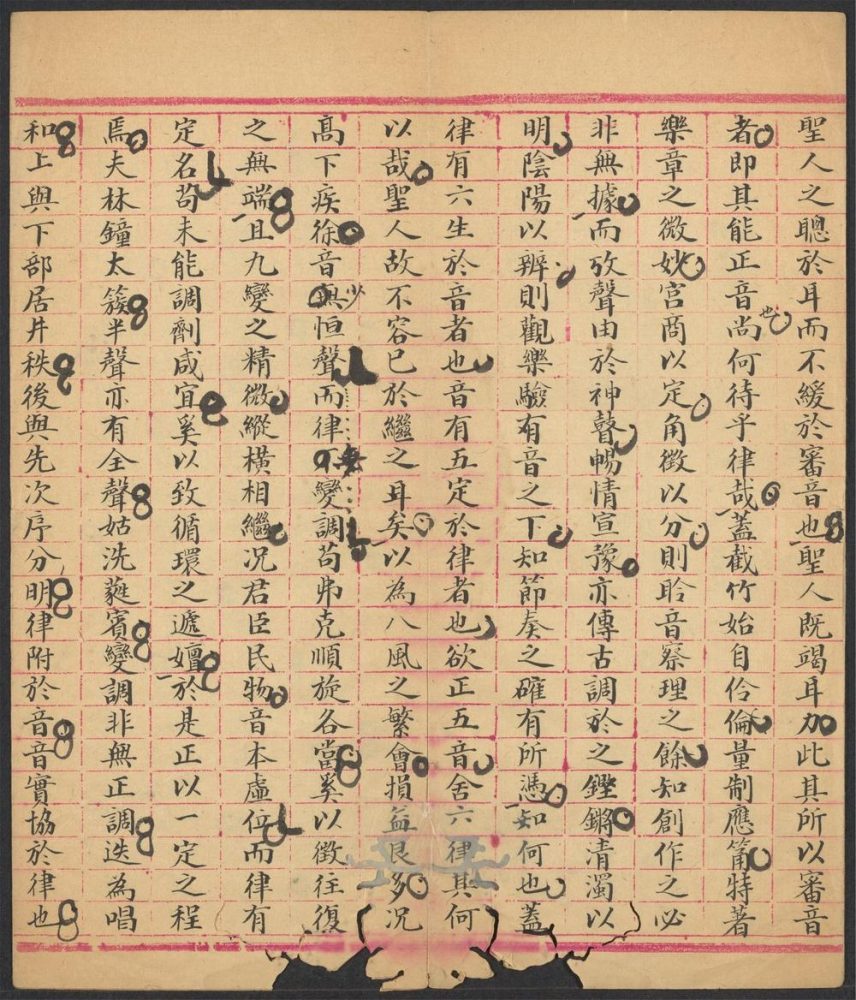 聖人之聰於耳而不緩於審音也聖人既竭耳力此其所以審音
者即其能正音尚何待乎律哉蓋截竹始自伶倫量制應筩特著
也
樂章之微妙宮商以定角徵以分則聆音察理之餘知創作之必
非無據而攷聲由於神瞽暢情宣豫亦傳古調於之鏗鏘清濁以
明陰陽以辨則觀樂驗有音之下知節奏之確有所憑如何也蓋
律有六生於音者也音有五定於律者也欲正五音舍六律其何
以哉聖人故不容已於繼之耳矣以為八風之繁會損益良多况
少
高下疾徐音無恒聲而律不變調苟弗克順旋各當奚以徵往復
之無端且九變之精微縱橫相繼况君臣民物音本虛位而律有
定名苟未能調劑咸宜奚以致循環之遞嬗於是正以一定之程
焉夫林鐘太簇半聲亦有全聲姑洗蕤賓變調非無正調迭為唱
和上與下部居井秩後與先次序分明律附於音音實協於律也